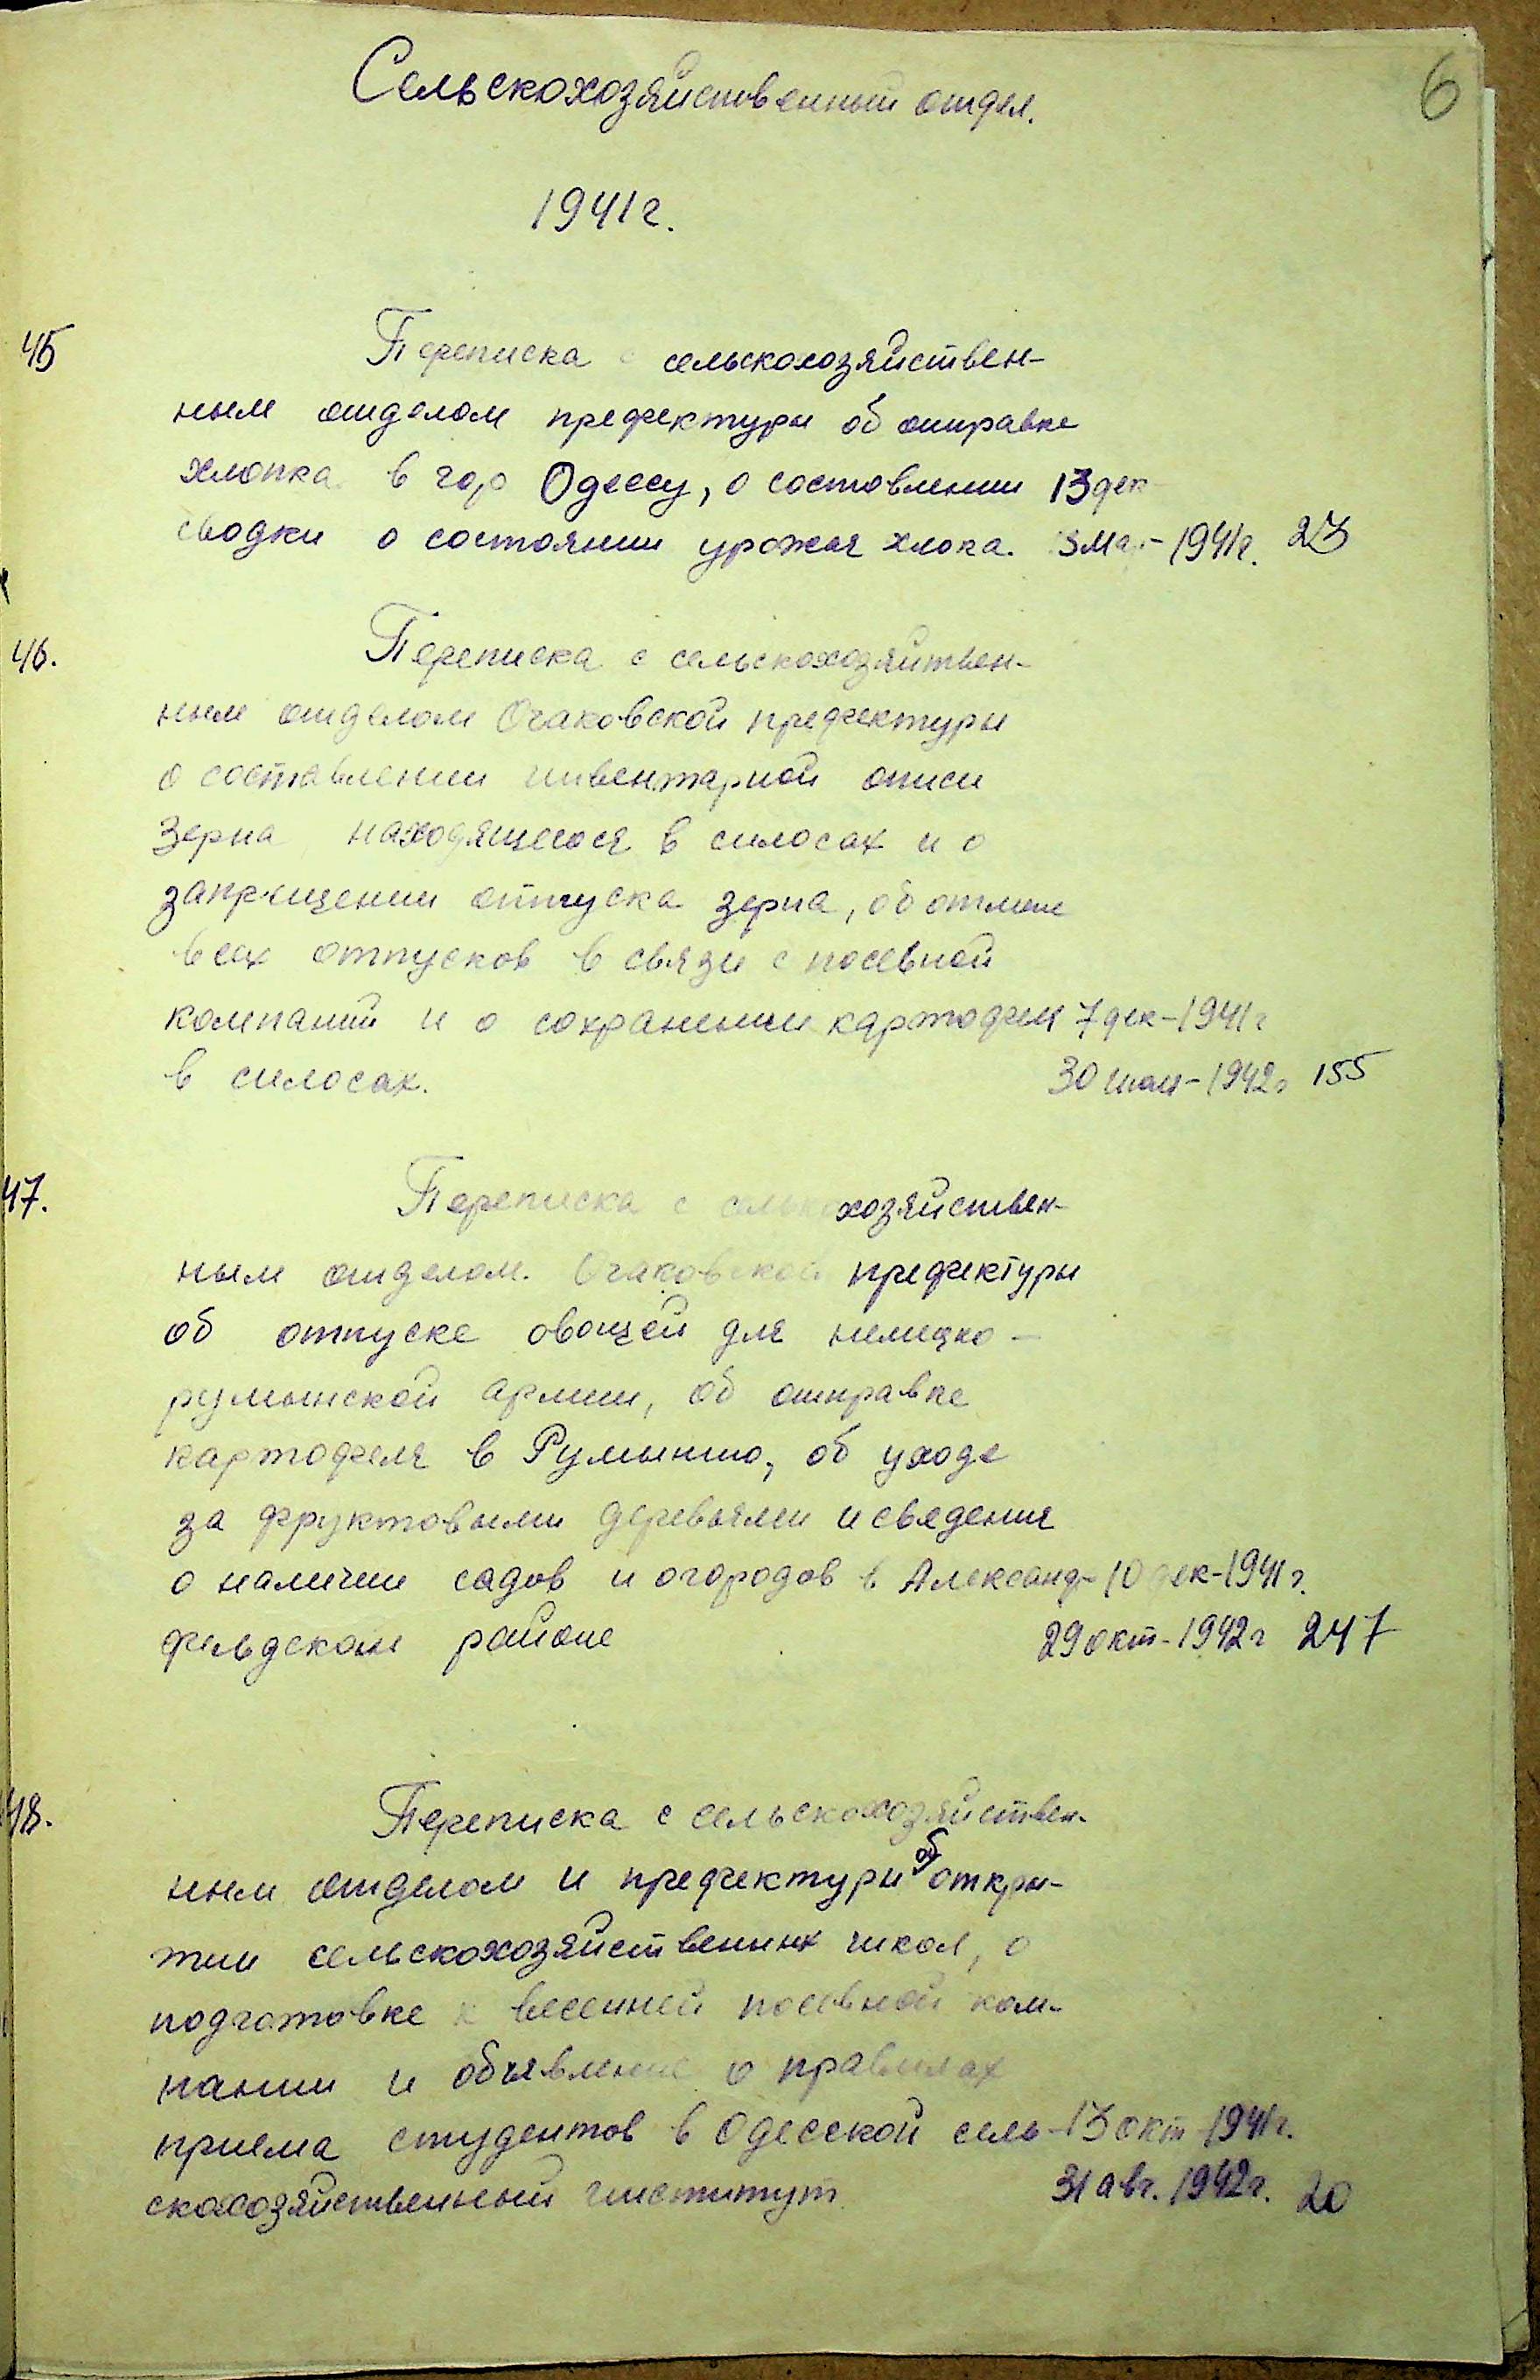 6
Сельскохозяйственный отдел.
1941г.
45 Переписка с сельскохозяйствен-
ным отделом префектуры об отправке
хлопка в гор Одессу, о составлении 13 дек
сводки о состоянии урожая хлока. - 1941г. 23
46. Переписка с сельскохозяйствен-
ным отделом Очаковской префектуры
о составлении инвентарной описи
зерна находящегося в силосах и о
запрещении отпуска зерна, об отмене
всех отпусков в связи с посевной
компаний и о сохранении картофеля 7 дек-1941г
в силосах. 30 мая-1942г 155
47. Переписка с сельскохозяйствен-
ным отделом. Очаковской префектуры
об отпуске овощей для немецко-
румынской армии, об отправке
картофеля в Румынию, об уходе
за фруктовыми деревьями и сведения
о наличии садов и огородов в Александр- 10 дек-1941г.
фельдском районе 29 окт-1942г 247
48. Переписка с сельскохозяйствен-
ным отделом и префектуры об откры-
тии сельскохозяйственных школ, о
подготовке к весенней посевной ком-
пании и объявление о правилах
приема студентов в Одесской сель- 13 окт-1941г.
скохозяйственный институт 31 авг. 1942г. 20